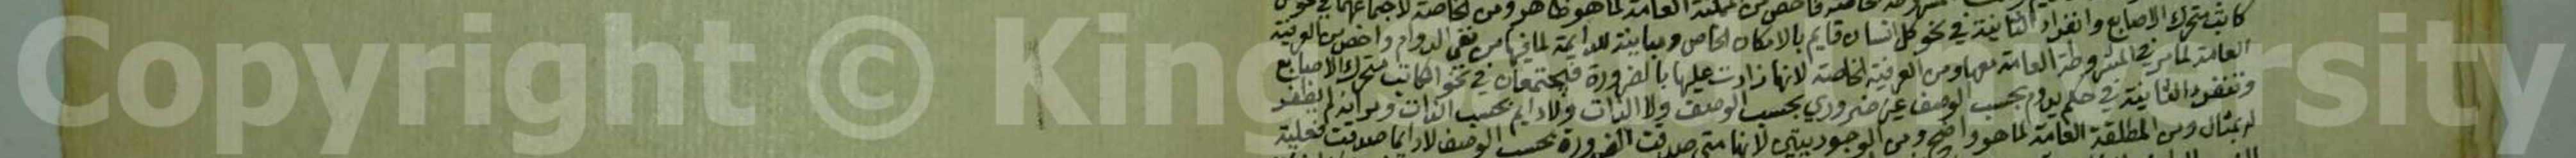 كاتب متحرك الاصابع وانفراد الثانية في نحو كل انسان قايم بالامكان الخاص ومباينة للدايمة لما فيها من نفي الدوام واخص من العرفية
العامة لما مر في المشروطة العامة معها ومن العرفية الخاصة لانها زادت عليها بالضرورة فيجتمعان في نحو الكاتب متحرك الاصابع
وتنفرد الثانية في حكم يدوم بحسب الوصف غير ضروري بحسب الوصف ولا الذات ولا دايم بحسب الذات
له بمثال ومن المطلقة العامة لما هو واضح ومن الوجوديتين لانها متى صدقت الضرورة بحسب الوصف لا دايما صدقت فعلية
Copyright © King University